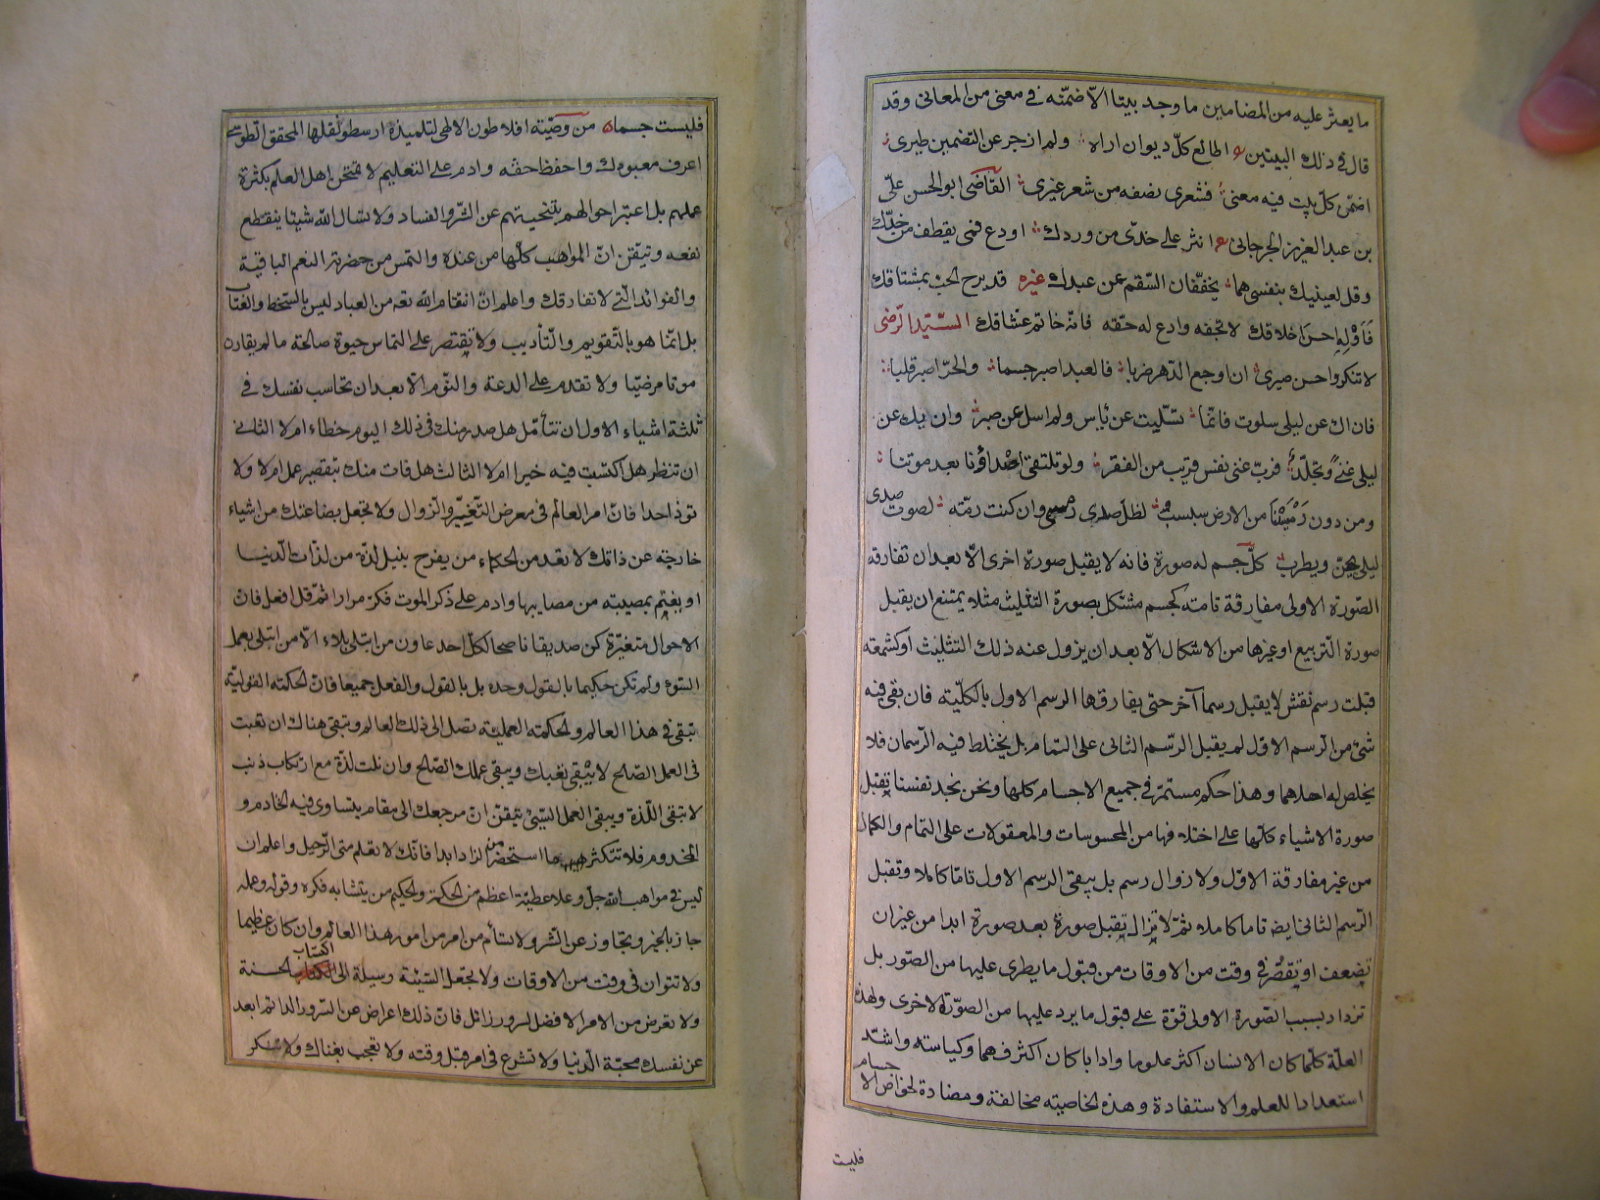 ما يعثر عليه من المضامين ما وجد بيتا الا ضمنه في معنى من المعاني وقد
قال في ذلك البيتين اطالع كل ديوان اراه ولم ازجر عن التضمين طيري
اضمن كل بيت فيه معنى فشعري نصفه من شعر غيري القاضي ابو الحسن علي
بن عبد العزيز الجرجاني انثر على خدي من وردك او دع فمي يقطف من خدك
وقل لعينيك بنفسي هما يخففان السقم عن عبدك غيره قد برح الحب بمشتاقك
فاوله احسن اخلاقك لا تجفه وارع له حقه فانه خاتم عشاقك السيد الرضي
لا تنكروا حسن صبري ان اوجع الدهر ضربا فالعبد اصبر جسما والحر اصبر قلبا
فان اك عن ليلى سلوت فانما تسليت عن ياس ولم اسل عن صبر وان يك عن
ليلى غنى وتجلد فرب غنى نفس قريب من الفقر ولو تلتقي اصداؤنا بعد موتنا
ومن دون رمسينا من الارض سبسب لظل صدى رمسي وان كنت رمة لصوت صدى
ليلى يحن ويطرب كل جسم له صورة فانه لا يقبل صورة اخرى الا بعد ان تفارقه
الصورة الاولى مفارقة تامة كجسم مشتكل بصورة التثليث مثلا يمتنع ان يقبل
صورة التربيع او غيرها من الاشكال الا بعد ان يزول عنه ذلك التثليث او كشمعة
قبلت رسم نقش لا يقبل رسما آخر حتى يفارقها الرسم الاول بالكلية فان بقى فيه
شئ من الرسم الاول لم يقبل الرسم الثاني على التمام بل يختلط فيه الرسمان فلا
يخلص له احدهما وهذا حكم مستمر في جميع الاجسام كلها ونحن نجد نفسنا تقبل
صورة الاشياء كلها على اختلافها من المحسوسات والمعقولات على التمام والكمال
من غير مفارقة الاول ولا زوال رسم بل يبقى الرسم الاول تاما كاملا وتقبل
الرسم الثاني ايضا تاما كاملا ثم لا تزال تقبل صورة بعد صورة ابدا من غير ان
تضعف او تقصر في وقت من الاوقات من قبول ما يطرى عليها من الصور بل
تزداد بسبب الصورة الاولى قوة على قبول ما يرد عليها من الصورة الاخرى ولهذه
العلة كلما كان الانسان اكثر علوما وادابا كان اكثر فهما وكياسة واشد
استعدادا للعلم والاستفادة وهذه الخاصية مخالفة ومضادة لخواص الاجسام
فليست
فليست جسما من وصية افلاطون الالهي لتلميذه ارسطو نقلها المحقق الطوسي
اعرف معبودك واحفظ حقه وادم على التعليم لا تمتحن اهل العلم بكثرة
علمهم بل اعتبر احوالهم بتنحيتهم عن الشر والفساد ولا تسال الله شيئا ينقطع
نفعه وتيقن ان المواهب كلها من عنده والتمس من حضرته النعم الباقية
والفوائد التي لا تفارقك واعلم ان انتقام الله تعه من العباد ليس بالسخط والعتاب
بل انما هو بالتقويم والتأديب ولا تقتصر على التماس حيوة صالحة ما لم يقارن
موتا مرضيا ولا تقدم على الدعة والنوم الا بعد ان تحاسب نفسك في
ثلثة اشياء الاول ان تتأمل هل صدر منك في ذلك اليوم خطاء ام لا الثاني
ان تنظر هل اكتسبت فيه خيرا ام لا الثالث هل فات منك بتقصير عمل ام لا ولا
تؤذ احدا فان امر العالم في معرض التغيير والزوال ولا تجعل بضاعتك من اشياء
خارجة عن ذاتك لا تعد من الحكماء من يفرح بنيل لذة من لذات الدنيا
او يغتم بمصيبة من مصايبها وادم على ذكر الموت فكر مرارا ثم قل افعل فان
الاحوال متغيرة كن صديقا ناصحا لكل احد عاون من ابتلى ببلاء الا من ابتلى بعمل
السوء ولم تكن حكيما بالقول وحده بل بالقول والفعل جميعا فان الحكمة القولية
تبقى في هذا العالم والحكمة العملية تصل الى ذلك العالم وتبقى هناك ان تعبت
في العمل الصالح لا يبقى تعبك ويبقى عملك الصالح وان نلت لذة مع ارتكاب ذنب
لا تبقى اللذة ويبقى العمل السيئ تيقن ان مرجعك الى مقام يتساوى فيه الخادم و
المخدوم فلا تتكثر هيهنا استحضر من الزاد ابدا فانك لا تعلم متى الرحيل واعلم ان
ليس في مواهب الله جل وعلا عطية اعظم من الحكمة والحكيم من يتشابه فكره وقوله وعمله
جاز بالخير وتجاوز عن الشر ولا تسأم من امر من امور هذا العالم وان كان عظيما
ولا تتوان في وقت من الاوقات ولا تجعل السيئة وسيلة الى اكتساب الحسنة
ولا تعرض من الامر الافضل لسرور زائل فان ذلك اعراض عن السرور الدائم ابعد
عن نفسك محبة الدنيا ولا تشرع في امر قبل وقته ولا تعجب بغناك ولا